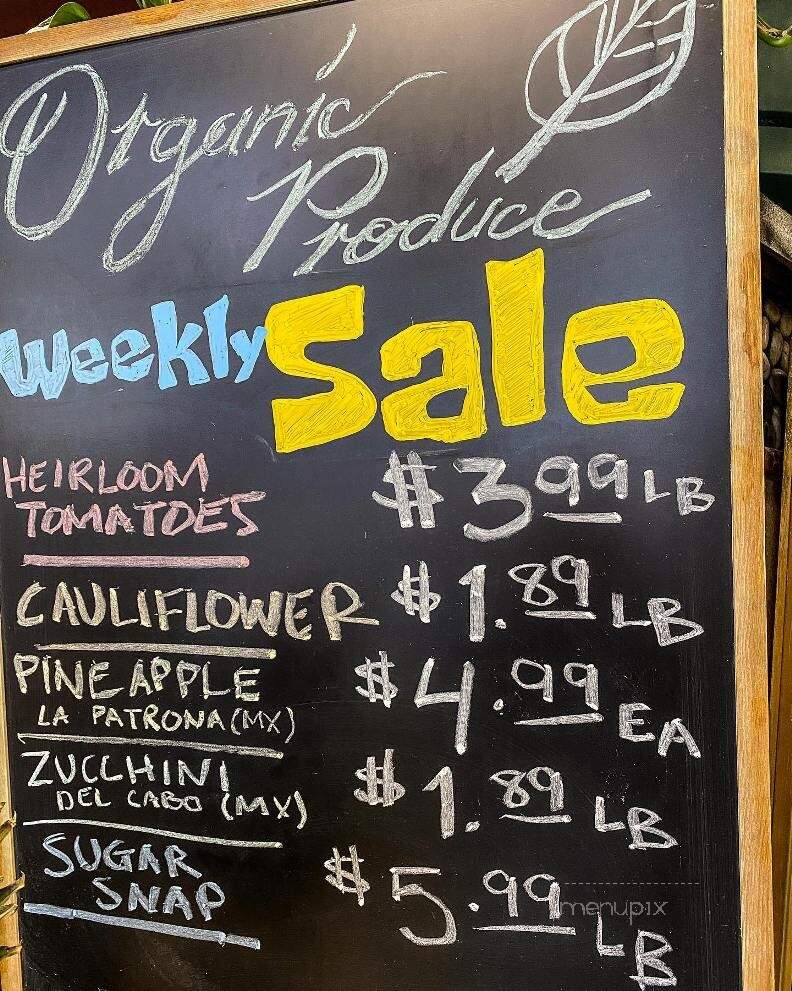 Organic
Produce
Weekly Sale
HEIRLOOM
TOMATOES $3 99 LB
CAULIFLOWER $1.89 LB
PINEAPPLE $4.99 EA
LA PATRONA (MX)
ZUCCHINI $1.89 LB
DEL CABO (MX)
SUGAR
SNAP $5.99 LB
menupix